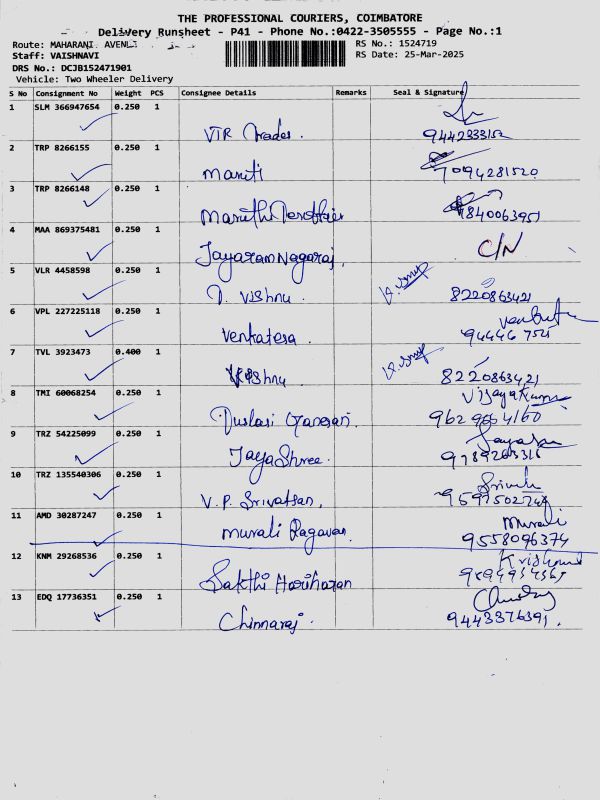 THE PROFESSIONAL COURIERS, COIMBATORE
Delivery Runsheet - P41 - Phone No.:0422-3505555 - Page No.:1
Route: MAHARANI AVENU
RS No.: 1524719
Staff: VAISHNAVI
RS Date: 25-Mar-2025
DRS No.: DCJB152471901
Vehicle: Two Wheeler Delivery
S No Consignment No Weight PCS Consignee Details Remarks Seal & Signature
1 SLM 366947654 0.250 1
VTR Traders. 9442333152
2 TRP 8266155 0.250 1
Maruti 7094281520
3 TRP 8266148 0.250 1
Maruthi 9840063951
4 MAA 869375481 0.250 1 C/N
Jayaram Nagaraj.
5 VLR 4458598 0.250 1
D. Vishnu 8220863421
6 VPL 227225118 0.250 1
Venkatesa 94446 7521
7 TVL 3923473 0.400 1
Vishnu 8220863421
8 TMI 60068254 0.250 1 Vijayakumar
Dulasi Ganesan. 9629654160
9 TRZ 54225099 0.250 1
JayaShree. 9789263316
10 TRZ 135540306 0.250 1
V.P. Srivatsan. 9597502748
11 AMD 30287247 0.250 1 Murali
Murali Ragavan. 9558096374
12 KNM 29268536 0.250 1
Sakthi Hariharan
13 EDQ 17736351 0.250 1
Chinnaraj. 9443376391.